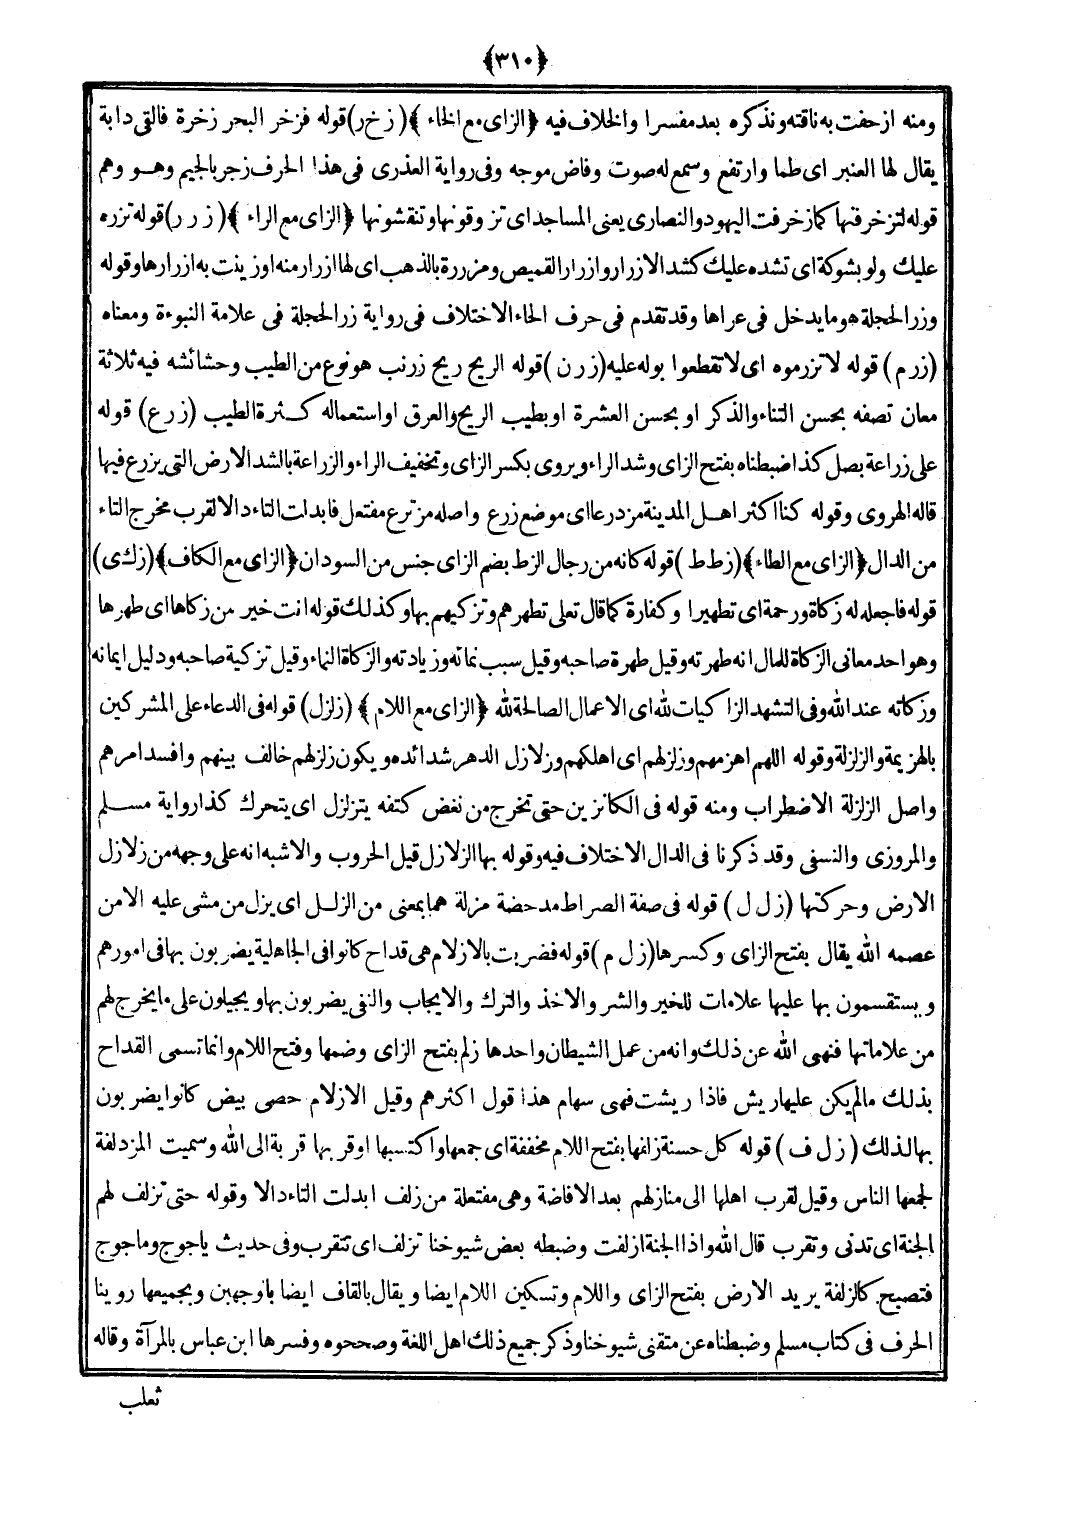 ﴿٣١٠﴾
ومنه ازحفت به ناقته ونذكره بعد مفسرا والخلاف فيه ﴿الزاى مع الخاء﴾ (زخر) قوله فزخر البحر زخرة فالقى دابة
يقال لها العنبر اى طما وارتفع وسمع له صوت وفاض موجه وفى رواية العذرى فى هذا الحرف زجر بالجيم وهو وهم
قوله لتزخرفنها كما زخرفت اليهود والنصارى يعنى المساجد اى تزوقونها وتنقشونها ﴿الزاى مع الراء﴾ (زرر) قوله تزره
عليك ولو بشوكة اى تشده عليك كشد الازرار وازرار القميص ومزررة بالذهب اى لها ازرار منه او زينت به ازرارها وقوله
وزر الحجلة هو ما يدخل فى عراها وقد تقدم فى حرف الحاء الاختلاف فى رواية زر الحجلة فى علامة النبوءة ومعناه
(زرم) قوله لا تزرموه اى لا تقطعوا بوله عليه (زرن) قوله الريح ريح زرنب هو نوع من الطيب وحشائشه فيه ثلاثة
معان تصفه بحسن الثناء والذكر او بحسن العشرة او بطيب الريح والعرق او استعماله كثرة الطيب (زرع) قوله
على زراعة بصل كذا ضبطناه بفتح الزاى وشد الراء ويروى بكسر الزاى وتخفيف الراء والزراعة بالشد الارض التى يزرع فيها
قاله الهروى وقوله كنا اكثر اهل المدينة مزدرعا اى موضع زرع واصله مزترع مفتعل فابدلت التاء دالا لقرب مخرج التاء
من الدال ﴿الزاى مع الطاء﴾ (زطط) قوله كانه من رجال الزط بضم الزاى جنس من السودان ﴿الزاى مع الكاف﴾ (زكى)
قوله فاجعله له زكاة ورحمة اى تطهيرا وكفارة كما قال تعلى تطهرهم وتزكيهم بها وكذلك قوله انت خير من زكاها اى طهرها
وهو احد معانى الزكاة للمال انه طهرته وقيل طهرة صاحبه وقيل سبب نمائه وزيادته والزكاة النماء وقيل تزكية صاحبه ودليل ايمانه
وزكاته عند الله وفى التشهد الزاكيات لله اى الاعمال الصالحة لله ﴿الزاى مع اللام﴾ (زلزل) قوله فى الدعاء على المشركين
بالهزيمة والزلزلة وقوله اللهم اهزمهم وزلزلهم اى اهلكهم وزلازل الدهر شدائده ويكون زلزلهم خالف بينهم وافسد امرهم
واصل الزلزلة الاضطراب ومنه قوله فى الكانزين حتى تخرج من نغض كتفه يتزلزل اى يتحرك كذا رواية مسلم
والمروزى والنسفى وقد ذكرنا فى الدال الاختلاف فيه وقوله بها الزلازل قيل الحروب والاشبه انه على وجهه من زلازل
الارض وحركتها (زلل) قوله فى صفة الصراط مدحضة مزلة هما بمعنى من الزلل اى يزل من مشى عليه الا من
عصمه الله يقال بفتح الزاى وكسرها (زلم) قوله فضربت بالازلام هى قداح كانوا فى الجاهلية يضربون بها فى امورهم
ويستقسمون بها عليها علامات للخير والشر والاخذ والترك والايجاب والنفى يضربون بها ويجيلون على ما يخرج لهم
من علاماتها فنهى الله عن ذلك وانه من عمل الشيطان واحدها زلم بفتح الزاى وضمها وفتح اللام وانما تسمى القداح
بذلك مالم يكن عليها ريش فاذا ريشت فهى سهام هذا قول اكثرهم وقيل الازلام حصى بيض كانوا يضربون
بها لذلك (زلف) قوله كل حسنة زلفها بفتح اللام مخففة اى جمعها واكتسبها او قربها قربة الى الله وسميت المزدلفة
لجمعها الناس وقيل لقرب اهلها الى منازلهم بعد الافاضة وهى مفتعلة من زلف ابدلت التاء دالا وقوله حتى تزلف لهم
الجنة اى تدنى وتقرب قال الله واذا الجنة ازلفت وضبطه بعض شيوخنا تزلف اى تتقرب وفى حديث ياجوج وماجوج
فتصبح كالزلفة يريد الارض بفتح الزاى واللام وتسكين اللام ايضا ويقال بالقاف ايضا بالوجهين وبجميعها روينا
الحرف فى كتاب مسلم وضبطناه عن متقنى شيوخنا وذكر جميع ذلك اهل اللغة وصححوه وفسرها ابن عباس بالمرآة وقاله
ثعلب